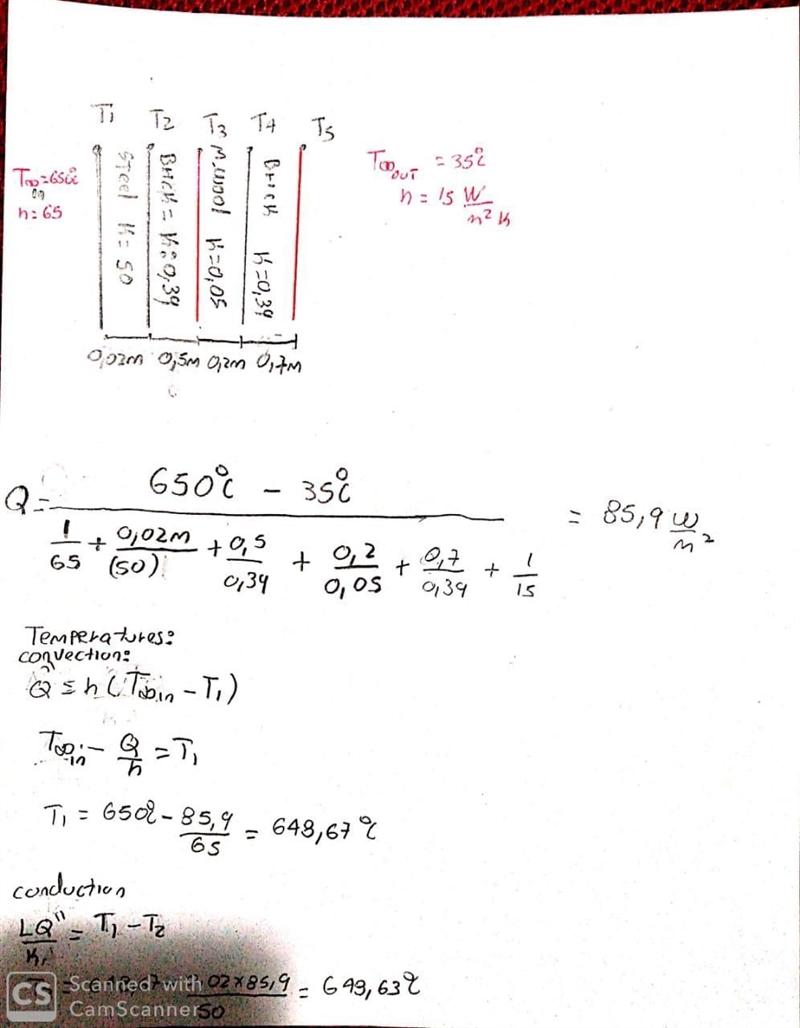 T1 T2 T3 T4 T5
T∞in=650°C
h=65
Steel K=50
Brick = K=0,39
M.wool K=0,05
Brick K=0,39
T∞OUT = 35°C
h = 15 W/m²K
0,02m 0,5m 0,2m 0,7m
Q = (650°C - 35°C) / (1/65 + 0,02m/(50) + 0,5/0,39 + 0,2/0,05 + 0,7/0,39 + 1/15) = 85,9 W/m²
Temperatures:
convection:
Q = h(T∞in - T1)
T∞in - Q/h = T1
T1 = 650°C - 85,9/65 = 648,67°C
conduction
LQ"/K1 = T1 - T2
02x85,9/50 = 648,63°C
CS Scanned with
CamScanner